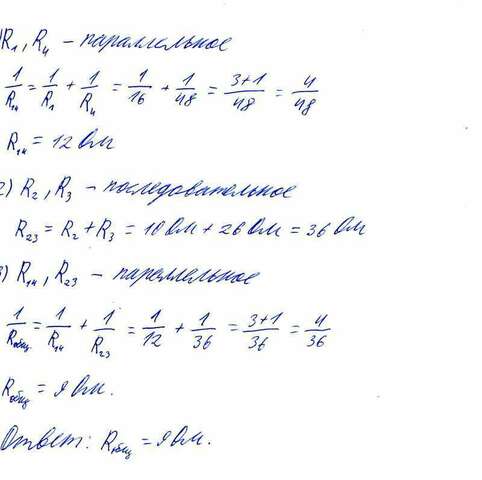 )R₁, R₄ – параллельное
1/R₁₄ = 1/R₁ + 1/R₄ = 1/16 + 1/48 = 3+1/48 = 4/48
R₁₄ = 12 Ом
2) R₂, R₃ – последовательное
R₂₃ = R₂ + R₃ = 10 Ом + 26 Ом = 36 Ом
3) R₁₄, R₂₃ – параллельное
1/Rобщ = 1/R₁₄ + 1/R₂₃ = 1/12 + 1/36 = 3+1/36 = 4/36
Rобщ = 9 Ом.
Ответ: Rобщ = 9 Ом.